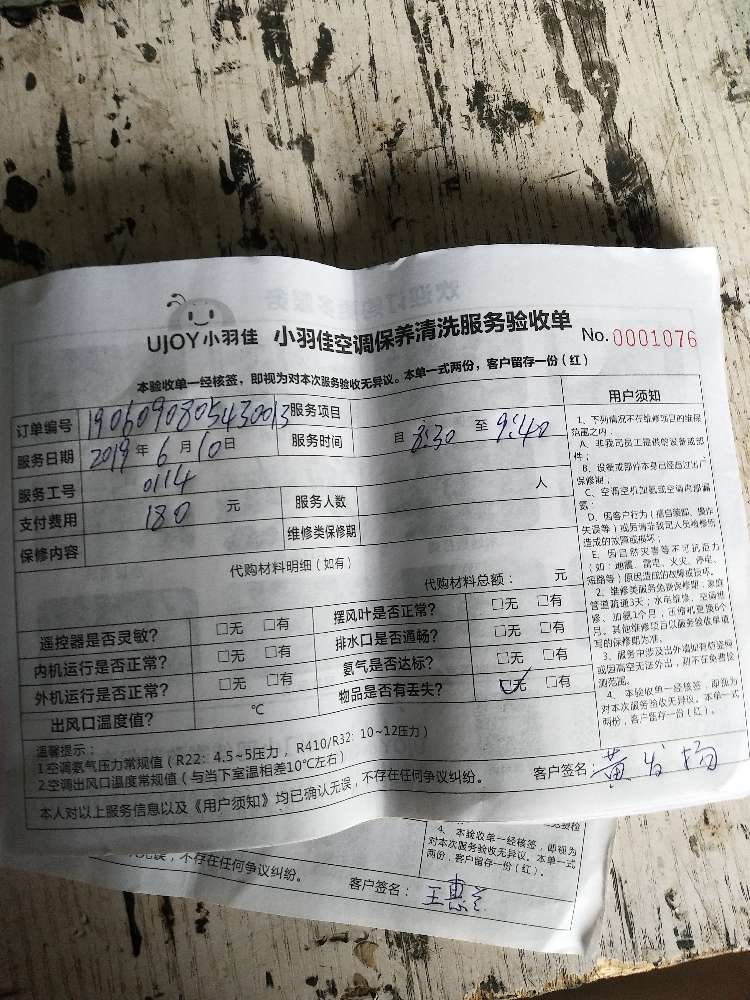 UJOY小羽佳 小羽佳空调保养清洗服务验收单 No.0001076
本验收单一经核签，即视为对本次服务验收无异议。本单一式两份，客户留存一份（红）
订单编号 1906090805430013 服务项目
服务日期 2019年6月10日 服务时间 自 8:30 至 9:40
服务工号 0114
支付费用 180 元 服务人数 人
保修内容 维修类保修期
代购材料明细（如有）
代购材料总额： 元
遥控器是否灵敏？ □无 □有 摆风叶是否正常？ □无 □有
内机运行是否正常？ □无 □有 排水口是否通畅？ □无 □有
外机运行是否正常？ □无 □有 氨气是否达标？ □无 □有
出风口温度值？ ℃ 物品是否有丢失？ □无 □有
温馨提示：
1.空调氨气压力常规值（R22: 4.5~5压力， R410/R32: 10~12压力）
2.空调出风口温度常规值（与当下室温相差10℃左右）
本人对以上服务信息以及《用户须知》均已确认无误，不存在任何争议纠纷。 客户签名：黄发扬
用户须知
1、下列情况不在维修项目的维保
范围之内：
A、非我司员工提供的设备或部
件；
B、设备或部件本身已经超过出厂
保修期；
C、空调空机加氨或空调内部漏
氨；
D、因客户行为（擅自装卸、操作
失误等）或另请非我司人员检修所
造成的故障或损坏；
E、因自然灾害等不可抗拒力
（如：地震、雷电、火灾、停电、
短路等）原因造成的故障或损坏。
2、维修类服务免费保修期：家庭
管道疏通3天；水龙维修、空调维
修、加氨1个月，压缩机更换6个
月。其他维修项目以服务验收单填
写的保修期为准。
3、服务中涉及出外墙如有防盗网
或因高空无法外出，则不在免费检
测范畴。
4、本验收单一经核签，即视为
对本次服务验收无异议。本单一式
两份，客户留存一份（红）。
4、本验收单一经核签，即视为
对本次服务验收无异议。本单一式
两份，客户留存一份（红）。
无误，不存在任何争议纠纷。 客户签名：王惠兰